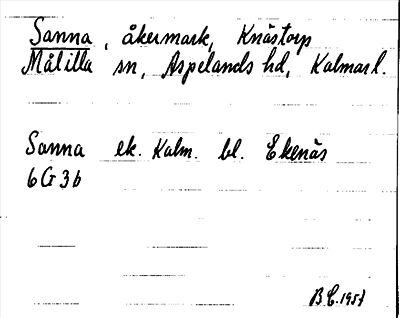 Sanna, åkermark, Knästorp
Målilla sn, Aspelands hd, Kalmar l.
Sanna ek. Kalm. bl. Ekenäs
6G3b
B.C. 1951